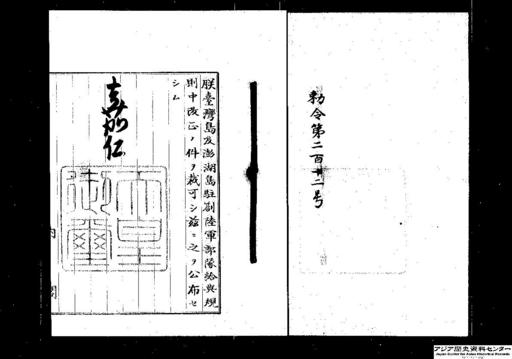 勅令第二百廿二号
朕臺灣島及澎湖島駐剳陸軍部隊給與規
則中改正ノ件ヲ裁可シ茲ニ之ヲ公布セ
シム
嘉仁
天皇
御璽
内
閣
アジア歴史資料センター
Japan Center for Asian Historical Records